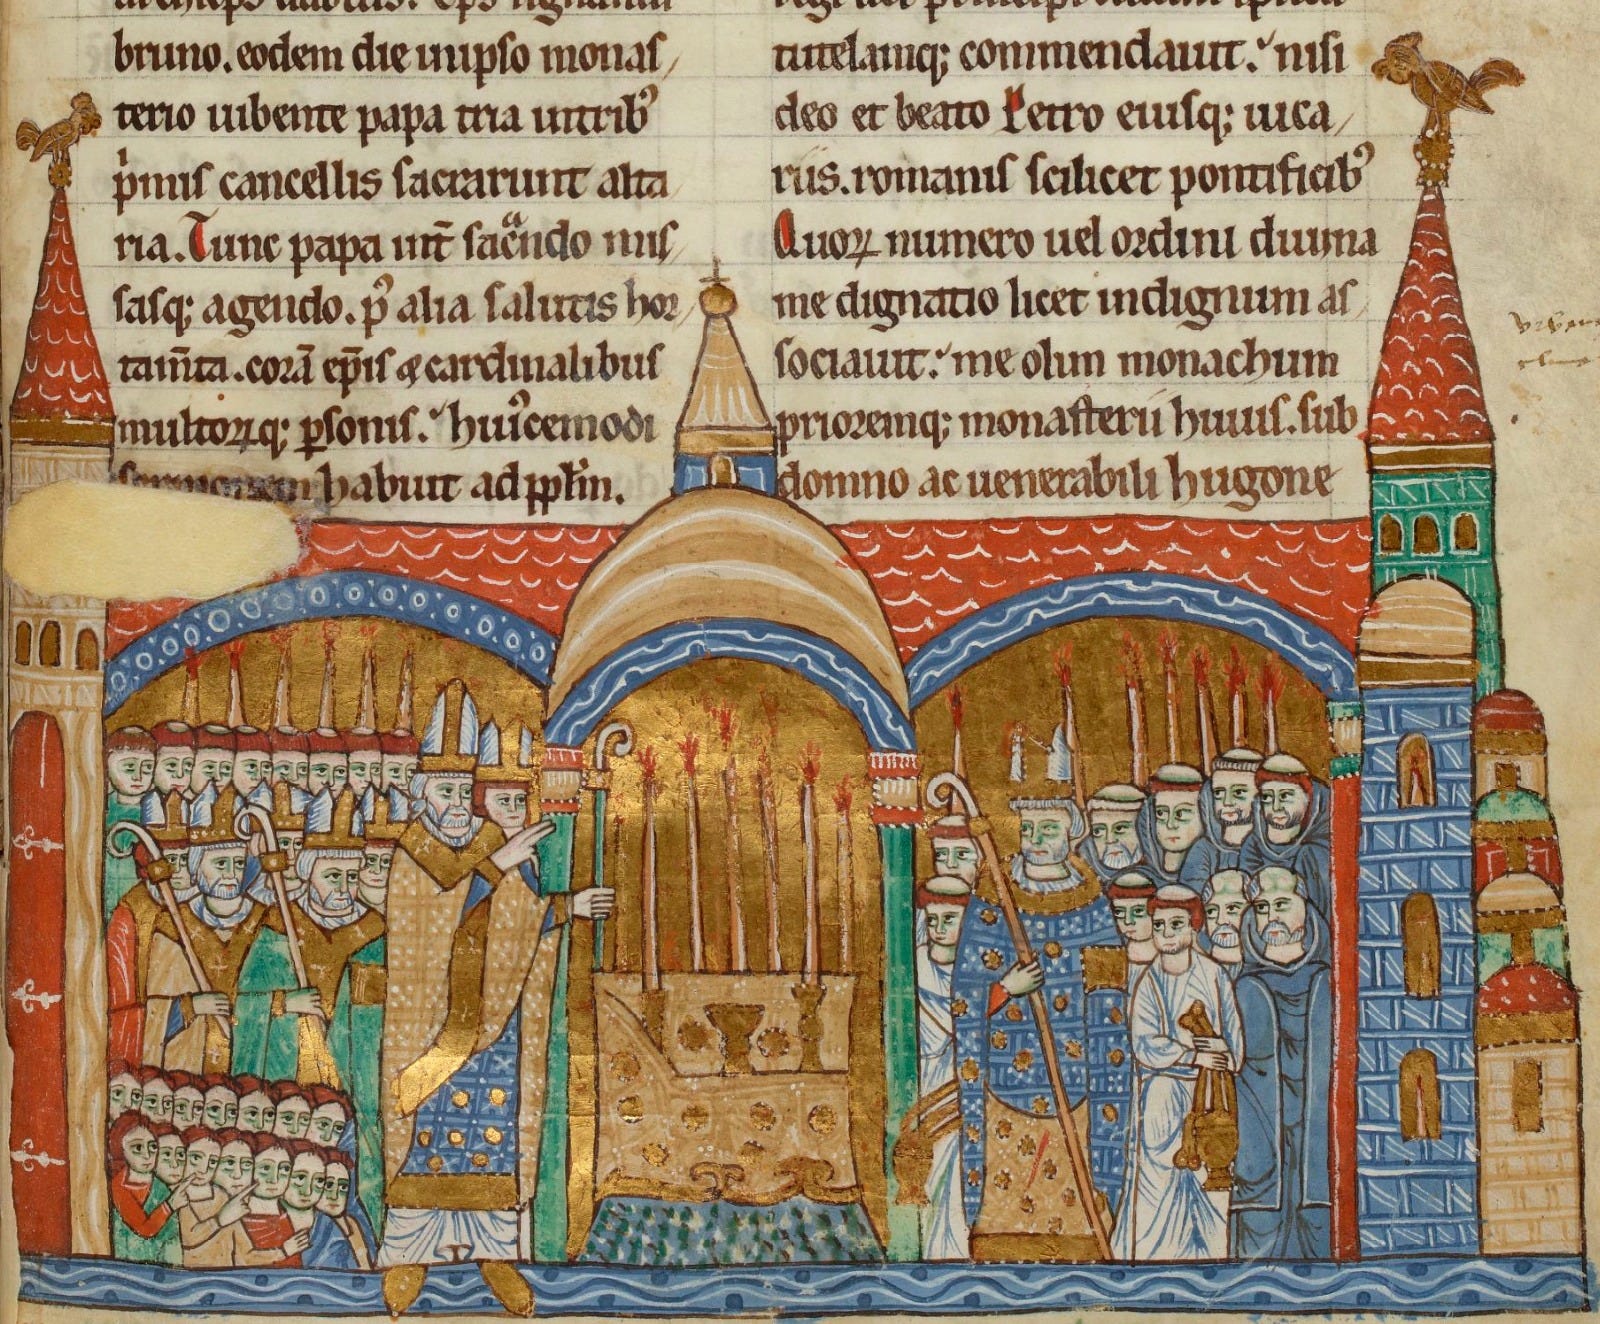 bruno. eodem die in ipso monas/
terio iubente papa tria in trib᾿
p̍mis cancellis sacrarunt alta
ria. Tunc papa int̄ sac̄ndo mis/
sasq; agendo. p᾿ alia salutis hor/
tam̄ta. corā ep̄is ⁊ cardinalibus
multoꝝq; ꝑsonis. huiꝰcemodi
habuit ad pp̄lm.
tutelamq; commendauit. nisi
deo et beato Petro eiusq; uica/
riis. romanis scilicet pontificib᾿
Quoꝝ numero uel ordini diuina
me dignatio licet indignum as/
sociauit. me olim monachum
prioremq; monasterii huius. sub
domno ac uenerabili hugone